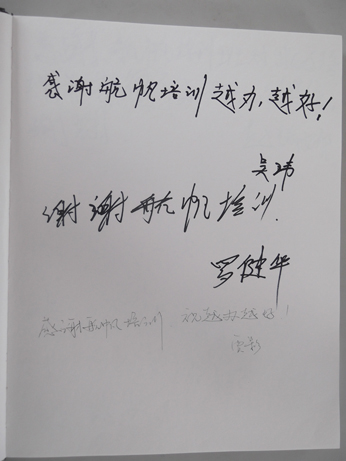 感谢航帆培训越办,越好!
吴玮
谢谢航帆培训.
罗健华
感谢航帆培训,祝越办越好!